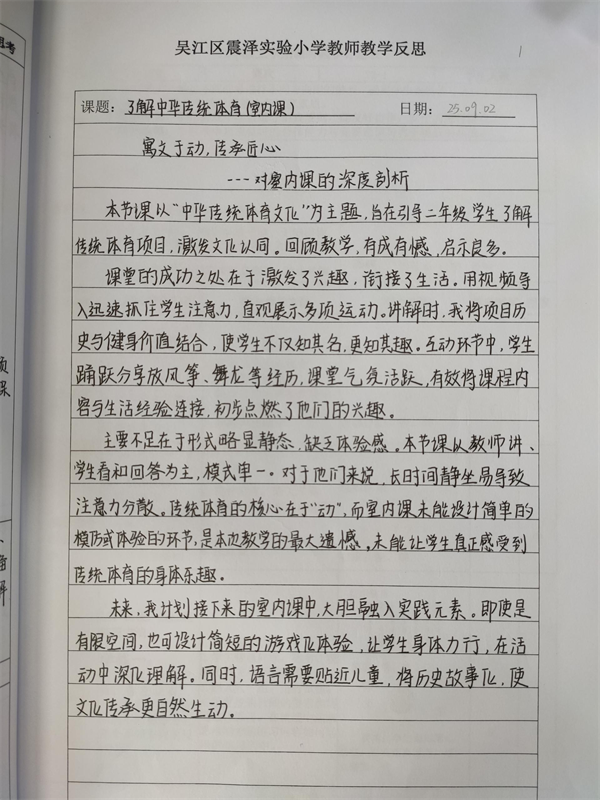 吴江区震泽实验小学教师教学反思
1
课题：了解中华传统体育(室内课) 日期：25.09.02
寓文于动，传承匠心
---对室内课的深度剖析
本节课以“中华传统体育文化”为主题，旨在引导二年级学生了解
传统体育项目，激发文化认同。回顾教学，有成有憾，启示良多。
课堂的成功之处在于激发了兴趣，衔接了生活。用视频导
入迅速抓住学生注意力，直观展示多项运动。讲解时，我将项目历
史与健身价值结合，使学生不仅知其名，更知其趣。互动环节中，学生
踊跃分享放风筝、舞龙等经历，课堂气氛活跃，有效将课程内
容与生活经验连接，初步点燃了他们的兴趣。
主要不足在于形式略显静态，缺乏体验感。本节课以教师讲、
学生看和回答为主，模式单一。对于他们来说，长时间静坐易导致
注意力分散。传统体育的核心在于“动”，而室内课未能设计简单的
模仿式体验的环节，是本次教学的最大遗憾。未能让学生真正感受到
传统体育的身体乐趣。
未来，我计划接下来的室内课中，大胆融入实践元素。即使是
有限空间，也可设计简短的游戏化体验，让学生身体力行，在活
动中深化理解。同时，语言需要贴近儿童，将历史故事化，使
文化传承更自然生动。
思考
课
解